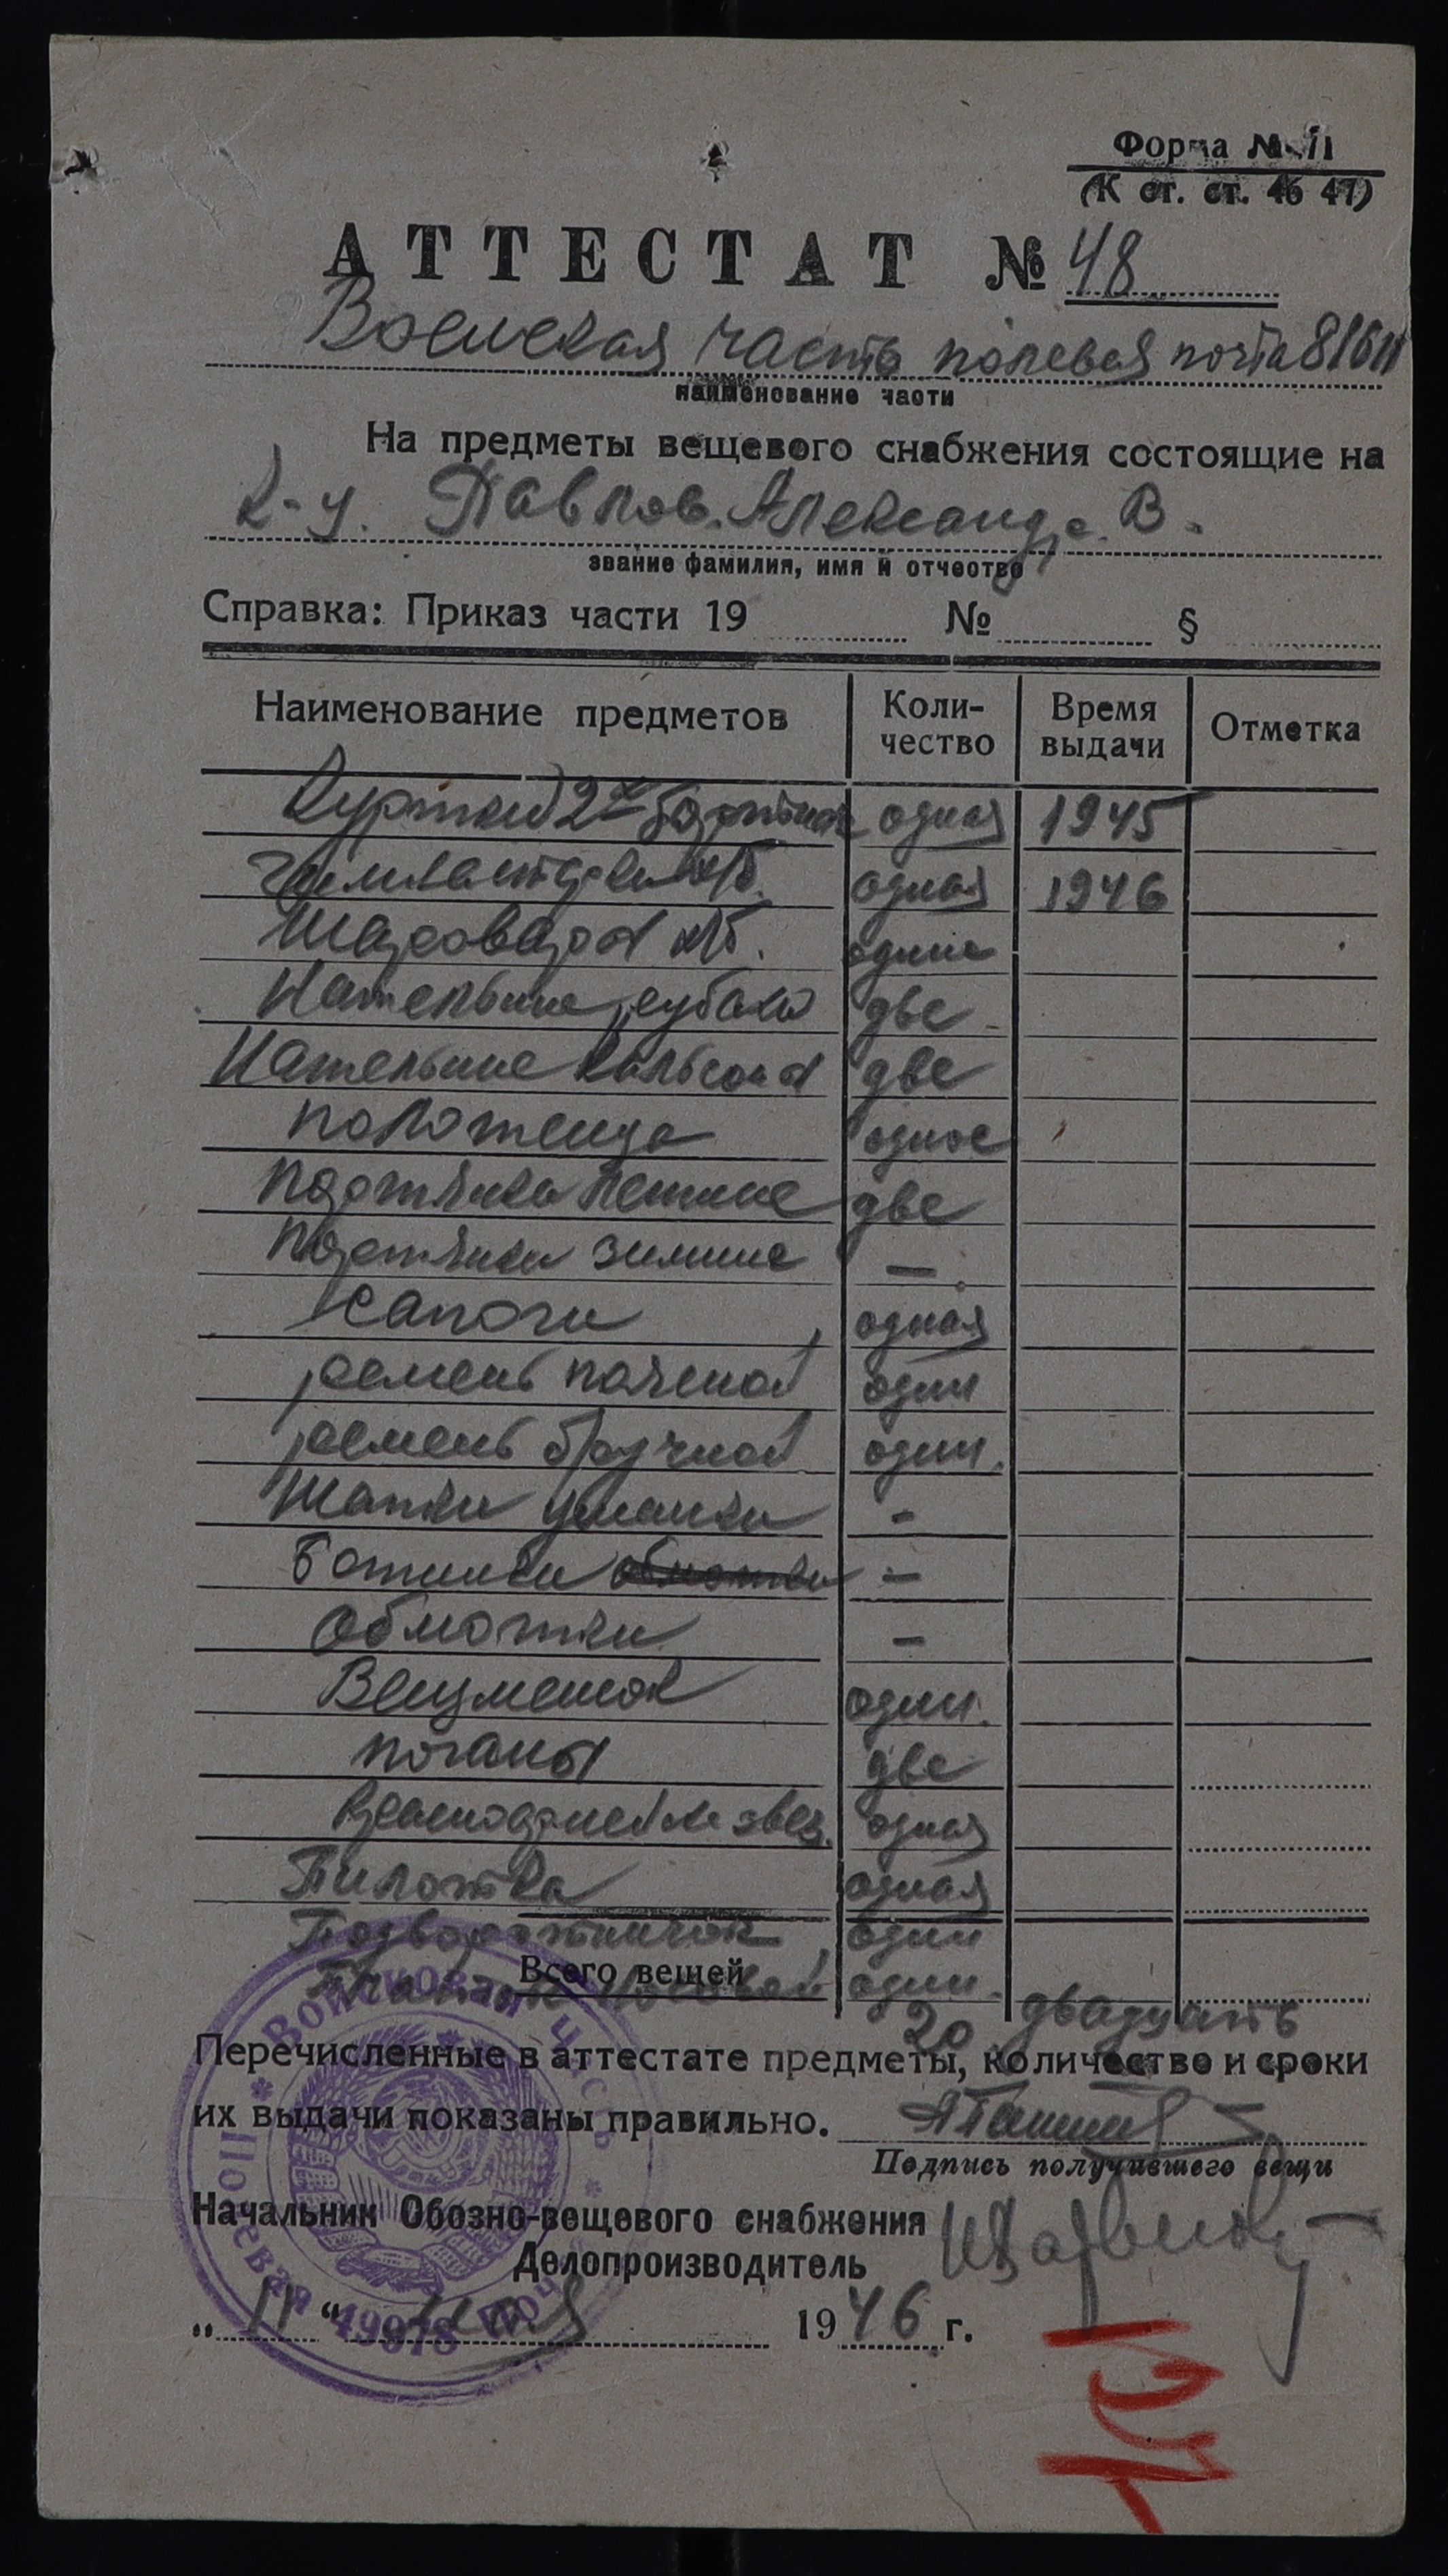 Форма № 11
(К ст. ст. 46 47)
АТТЕСТАТ № 48
Воинская часть полевая почта
наименование части
На предметы вещевого снабжения состоящие на
к-у. Павлов. Александр. В.
звание фамилия, имя и отчество
Справка: Приказ части 19 № §
Наименование предметов Коли-чество Время выдачи Отметка
Куртки 2х бортная одная 1945
Гимнастерки х/б. одная 1946
Шаровары х/б. одне
Нательные рубахи две
Нательные кальсоны две
полотенца одное
портянки летние две
портянки зимние —
Сапоги одная
ремень поясной один
ремень брючной один.
Шапки ушанки -
Ботинки -
Обмотки -
Вещмешок один.
погоны две
Красноармейск звез. одная
Пилотка одная
Подворотничок один
Платок носовой один.
Всего вещей 20 двадцать
Перечисленные в аттестате предметы, количество и сроки
их выдачи показаны правильно.
Подпись получившего вещи
Начальник Обозно-вещевого снабжения
Делопроизводитель
„ 11 “ 1946 г.
Войсковая часть * Полевая почта 49978 *